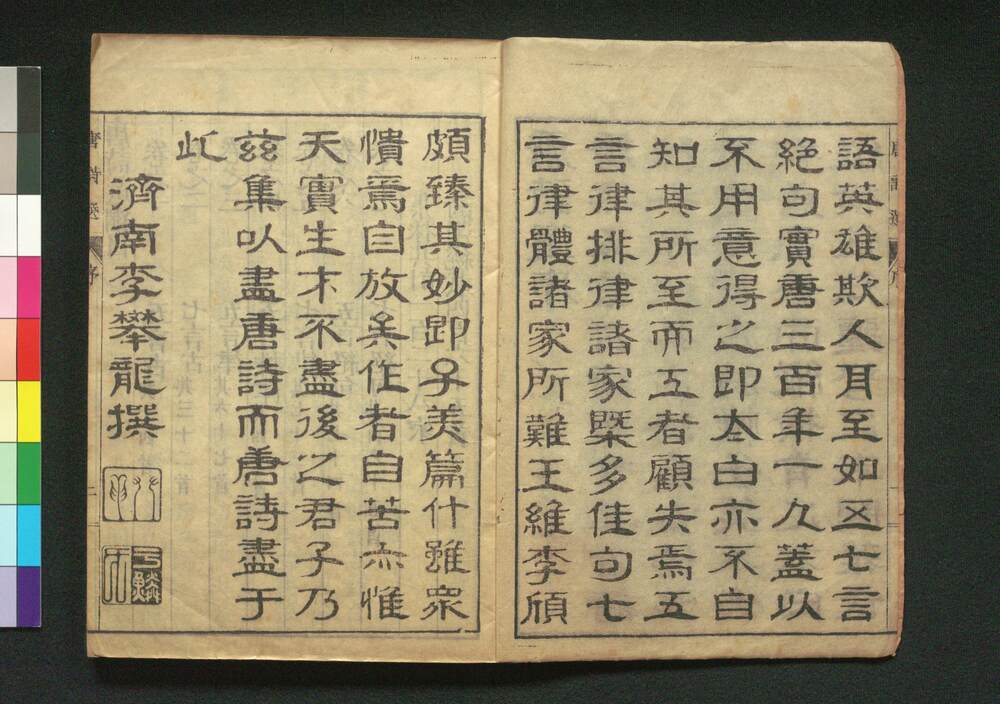 語英雄欺人耳至如五七言
絶句實唐三百年一人蓋以
不用意得之即太白亦不自
知其所至而工者顧失焉五
言律排律諸家槩多佳句七
言律體諸家所難王維李頎
頗臻其妙即子美篇什雖衆
憒焉自放矣作者自苦亦惟
天實生才不盡後之君子乃
茲集以盡唐詩而唐詩盡于
此
濟南李攀龍撰